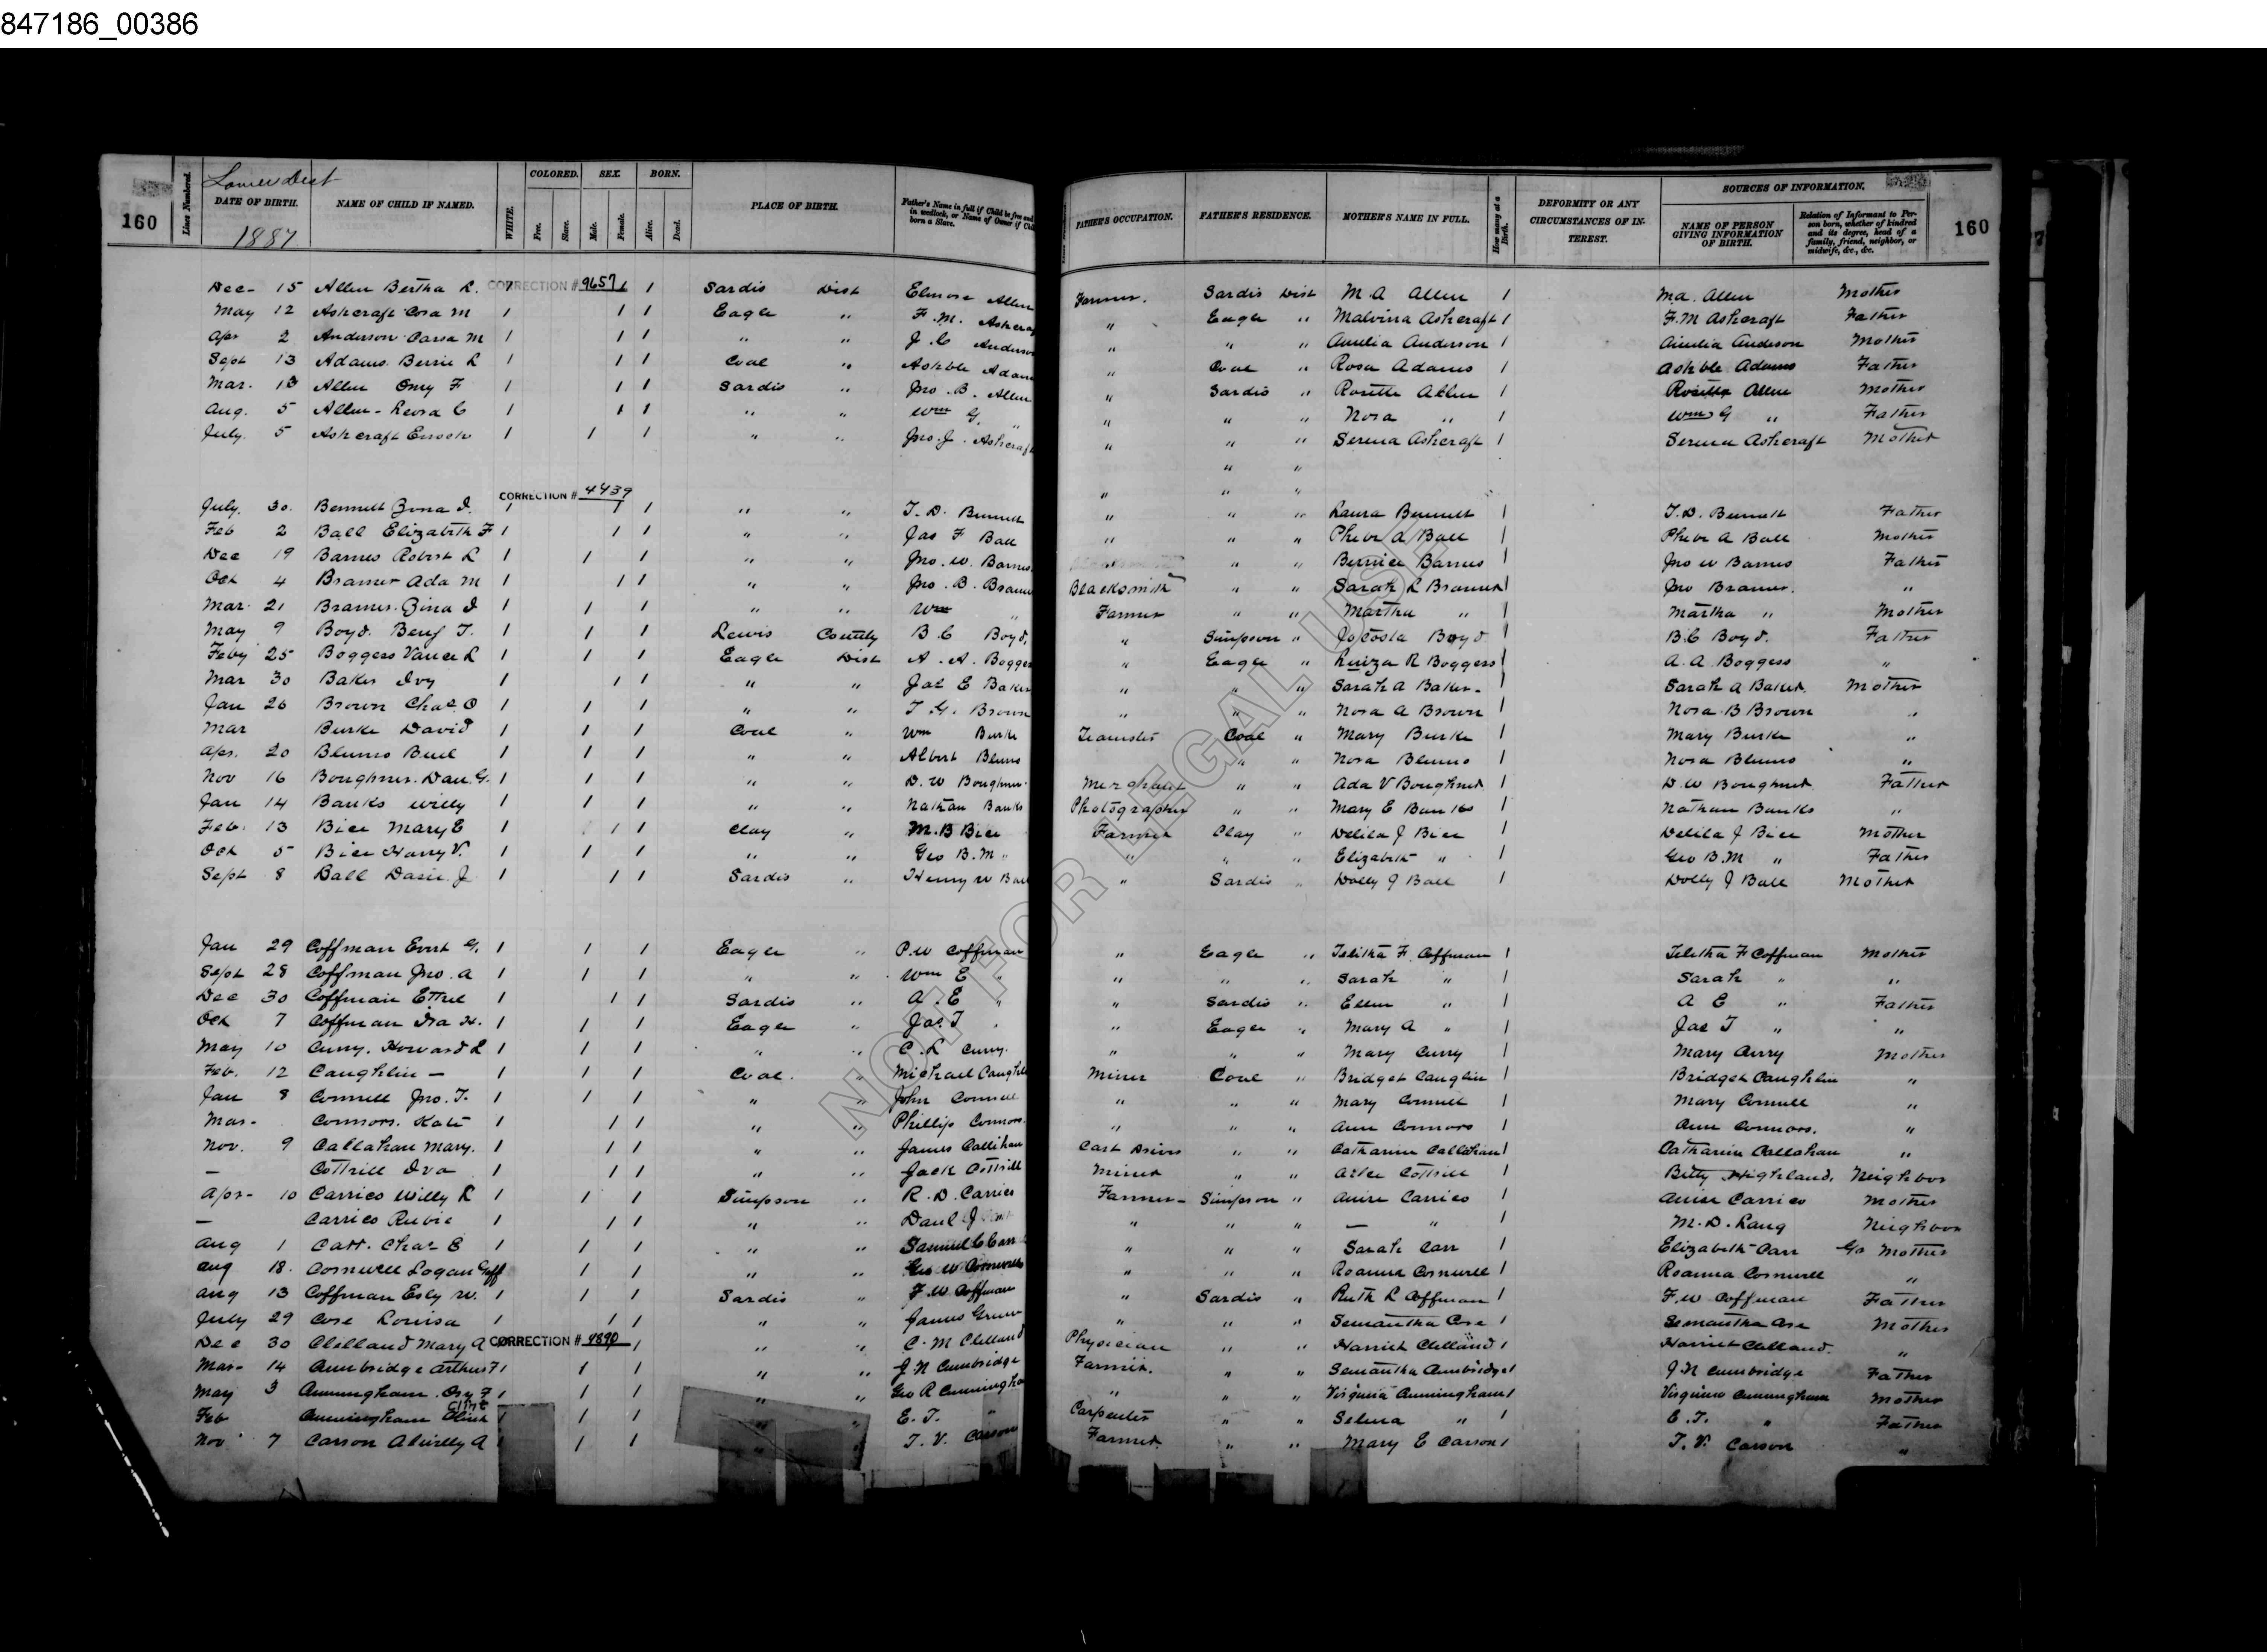 847186_00386
Lower Dist
160 Lines Numbered. DATE OF BIRTH. NAME OF CHILD IF NAMED. WHITE. COLORED. Free. Slave. SEX. Male. Female. BORN. Alive. Dead. PLACE OF BIRTH. Father's Name in full if Child be free and in wedlock, or Name of Owner if Child born a Slave. FATHER'S OCCUPATION. FATHER'S RESIDENCE. MOTHER'S NAME IN FULL. How many at a Birth. DEFORMITY OR ANY CIRCUMSTANCES OF INTEREST. SOURCES OF INFORMATION. NAME OF PERSON GIVING INFORMATION OF BIRTH. Relation of Informant to Person born, whether of kindred and its degree, head of a family, friend, neighbor, or midwife, &c., &c. 160
1887
Dec- 15 Allen Bertha L. 1 CORRECTION # 9657 1 1 Sardis Dist Elmore Allen Farmer. Sardis Dist M A Allen 1 M.a. Allen Mother
May 12 Ashcraft Cora M 1 1 1 Eagle " F. M. Ashcraf " Eagle " Malvina Ashcraft 1 F. M Ashcraft Father
Apr 2 Anderson Carsa M 1 1 1 " " J. C Anderson " " " Amelia Anderson 1 Amelia Anderson Mother
Sept 13 Adams Berrie L 1 1 1 Coal " Ashble Adam " Coal " Rosa Adams 1 Ashble Adams Father
Mar. 13 Allen Omy F 1 1 1 Sardis " Jno. B. Allen " Sardis " Rosetta Allen 1 Rosetta Allen Mother
Aug. 5 Allen - Leora C 1 1 1 " " Wm G. " " " " Nora " 1 Wm G " Father
July. 5 Ashcraft Enoch 1 1 1 " " Jno. J. Ashcraft " " " Serena Ashcraft 1 Serena Ashcraft Mother
" "
CORRECTION # 4439 " " "
July. 30. Bennett Zona I. 1 1 1 " " T. D. Bennett " " " Laura Bennett 1 T. D. Bennett Father
Feb 2 Ball Elizabeth F 1 1 1 " " Jas F Ball " " " Phebe A Ball 1 Phebe A Ball Mother
Dec 19 Barnes Robert L 1 1 1 " " Jno. W. Barnes " " " Bernice Barnes 1 Jno W Barnes Father
Oct 4 Bramer Ada M 1 1 1 " " Jno. B. Bramer Blacksmith " " Sarah L Bramer 1 Jno Bramer. "
Mar. 21 Bramer. Zina I 1 1 1 " " Wm " Farmer " " Martha " 1 Martha " Mother
May 9 Boyd. Benj T. 1 1 1 Lewis County B. C Boyd, " Simpson " Jocosta Boyd 1 B. C Boyd. Father
Feby 25 Boggess Vance L 1 1 1 Eagle Dist A. A. Bogges " Eagle " Luiza R Boggess 1 A. A. Boggess "
Mar 30 Baker Ivy 1 1 1 " " Jas E Baker " " " Sarah A Baker. 1 Sarah A Baker. Mother
Jan 26 Brown Chas. O 1 1 1 " " T. G. Brown " " " Nora A Brown 1 Nora B Brown "
Mar Burke David 1 1 1 Coal " Wm Burke Teamster Coal " Mary Burke 1 Mary Burke "
Apr. 20 Blumo Buel 1 1 1 " " Albert Blumo " " Nora Blumo 1 Nora Blumo "
Nov 16 Boughner. Dan. G. 1 1 1 " " D. W Boughner Merchant " " Ada V Boughner 1 D. W Boughner Father
Jan 14 Banks Willy 1 1 1 " " Nathan Banks Photographer " " Mary E Banks 1 Nathan Banks "
Feb. 13 Bice Mary E 1 1 1 Clay " M. B Bice Farmer Clay " Delila J Bice 1 Delila J Bice Mother
Oct 5 Bice Harry V. 1 1 1 " " Geo B. M " " " " Elizabeth " 1 Geo B. M " Father
Sept 8 Ball Dasie J 1 1 1 Sardis " Henry W Ball " Sardis " Dolly J Ball 1 Dolly J Ball Mother
Jan 29 Coffman Evert G. 1 1 1 Eagle " P. W Coffman " Eagle " Telitha F. Coffman 1 Telitha F Coffman Mother
Sept 28 Coffman Jno. A 1 1 1 " " Wm E " " " " Sarah " 1 Sarah " "
Dec 30 Coffman Ethel 1 1 1 Sardis " A. E " " Sardis " Ellen " 1 A E " Father
Oct 7 Coffman Ira H. 1 1 1 Eagle " Jas. T " " Eagle " Mary A " 1 Jas T " "
May 10 Curry. Howard L 1 1 1 " " C. L Curry. " " " Mary Curry 1 Mary Curry Mother
Feb. 12 Caughlin - 1 1 1 Coal. " Michael Caughl Miner Coal " Bridget Cauglin 1 Bridget Caughlin "
Jan 8 Connell Jno. T. 1 1 1 " " John Connell " " " Mary Connell 1 Mary Connell "
Mar - Connors. Kate 1 1 1 " " Phillip Connors. " " " Ann Connors 1 Ann Connors. "
Nov. 9 Callahan Mary. 1 1 1 " " James Callihan Cart Driver " " Catharine Callahan 1 Catharine Callahan "
- Cottrill Iva 1 1 1 " " Jack Cottrill Miner " " Cottrill 1 Betty Highland. Neighbor
Apr - 10 Carrico Willy L 1 1 1 Simpson " R. D. Carrico Farmer - Simpson " Carrico 1 Carrico Mother
- Carrico Rubie 1 1 1 " " Danl J " " " - " 1 M. D. Lang Neighbor
Aug 1 Carr. Chas E 1 1 1 " " Samuel C Carr " " " Sarah Carr 1 Elizabeth Carr G/o Mother
Aug 18. Cornwell Logan Goff 1 1 " " Geo W Cornwell " " " Roanna Cornwell 1 Roanna Cornwell "
Aug 13 Coffman Esby W. 1 1 1 Sardis " F. W Coffman " Sardis " Ruth L Coffman 1 F. W Coffman Father
July 29 Cose Louisa 1 1 1 " " James " " " Semantha Cose 1 Semantha Cose Mother
Dec 30 Clelland Mary A CORRECTION # 4890 1 " " C. M Clelland Physician " " Harriet Clelland 1 Harriet Clelland. "
Mar - 14 Cumbridge Arthur F 1 1 1 " " J. N Cumbridge Farmer. " " Semantha Cumbridge 1 J N Cumbridge Father
May 3 Cunningham. Ory F 1 1 1 " " Geo R Cunningha " " " Virginia Cunningham 1 Virginia Cunningham Mother
Feb Cunningham Clint Clint 1 1 1 " " E. T. " Carpenter " " Selma " 1 E. T. " Father
Nov 7 Carson A 1 1 1 " " T. V. Carson Farmer. " " Mary E Carson 1 T. V. Carson "
NOT FOR LEGAL USE